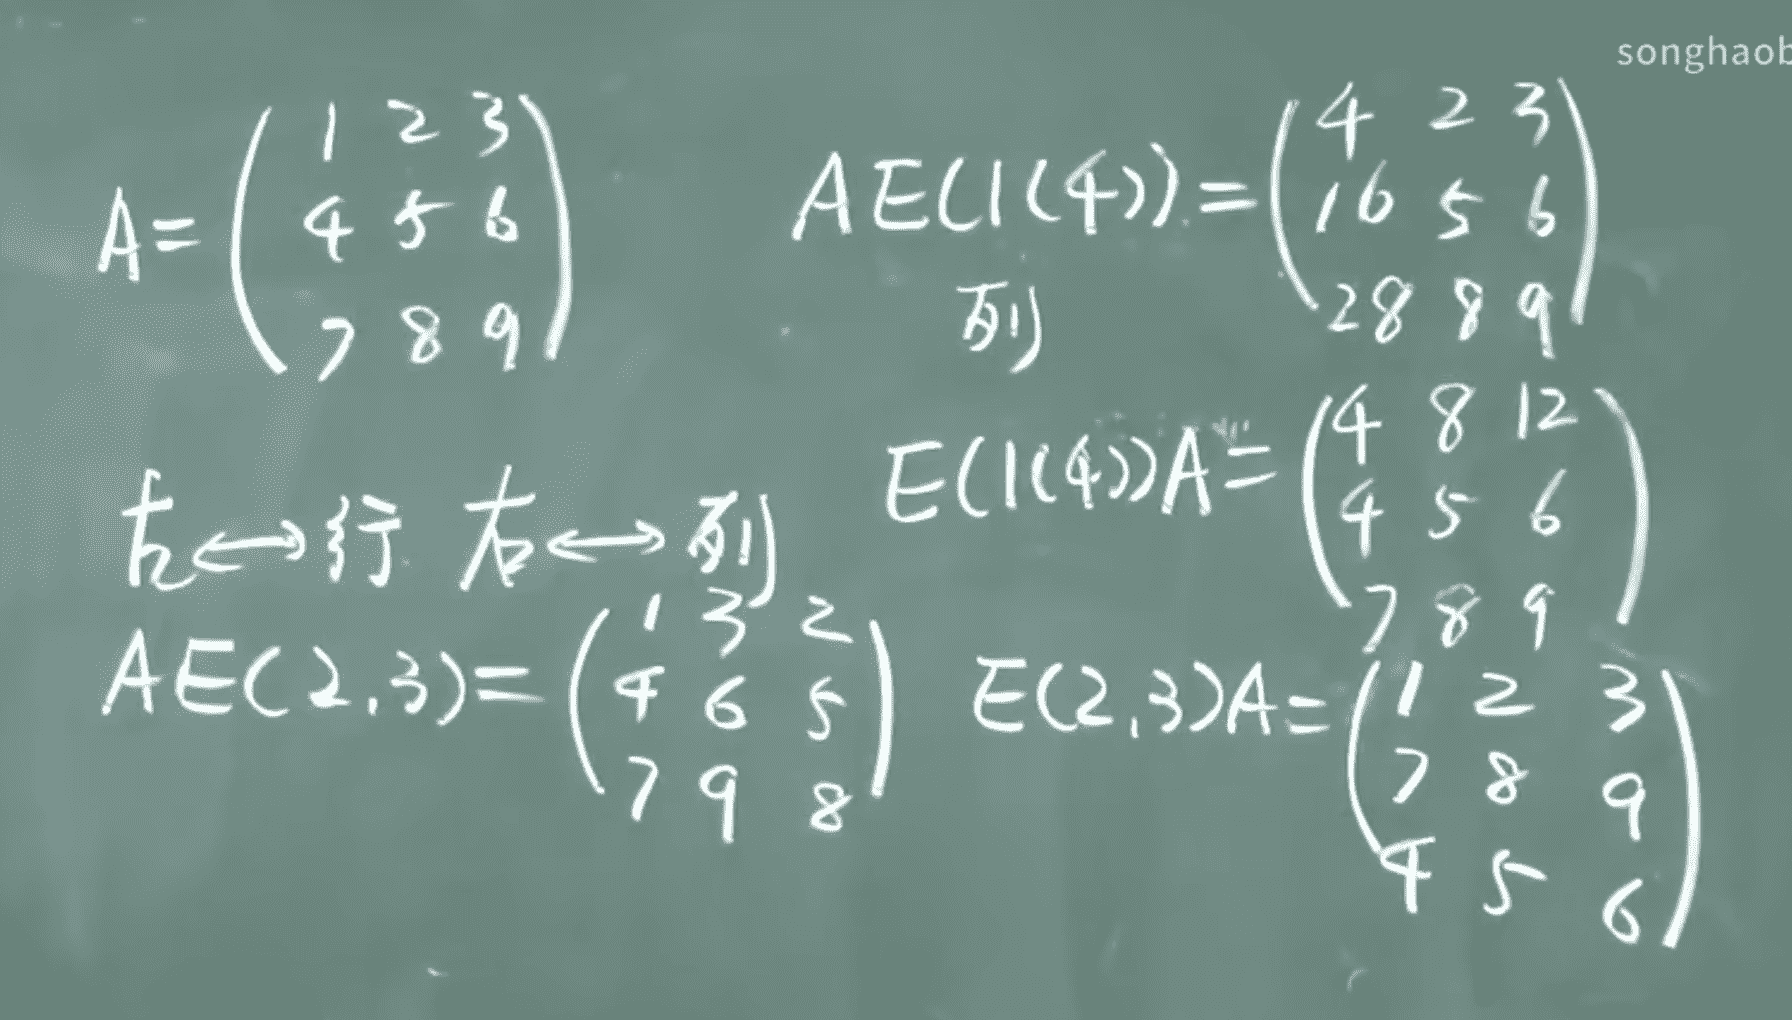 songhaob
A=
1 2 3
4 5 6
7 8 9
AE(1(4))=
4 2 3
16 5 6
28 8 9
列
E(1(4))A=
4 8 12
4 5 6
7 8 9
左↔行 右↔列
AE(2,3)=
1 3 2
4 6 5
7 9 8
E(2,3)A=
1 2 3
7 8 9
4 5 6